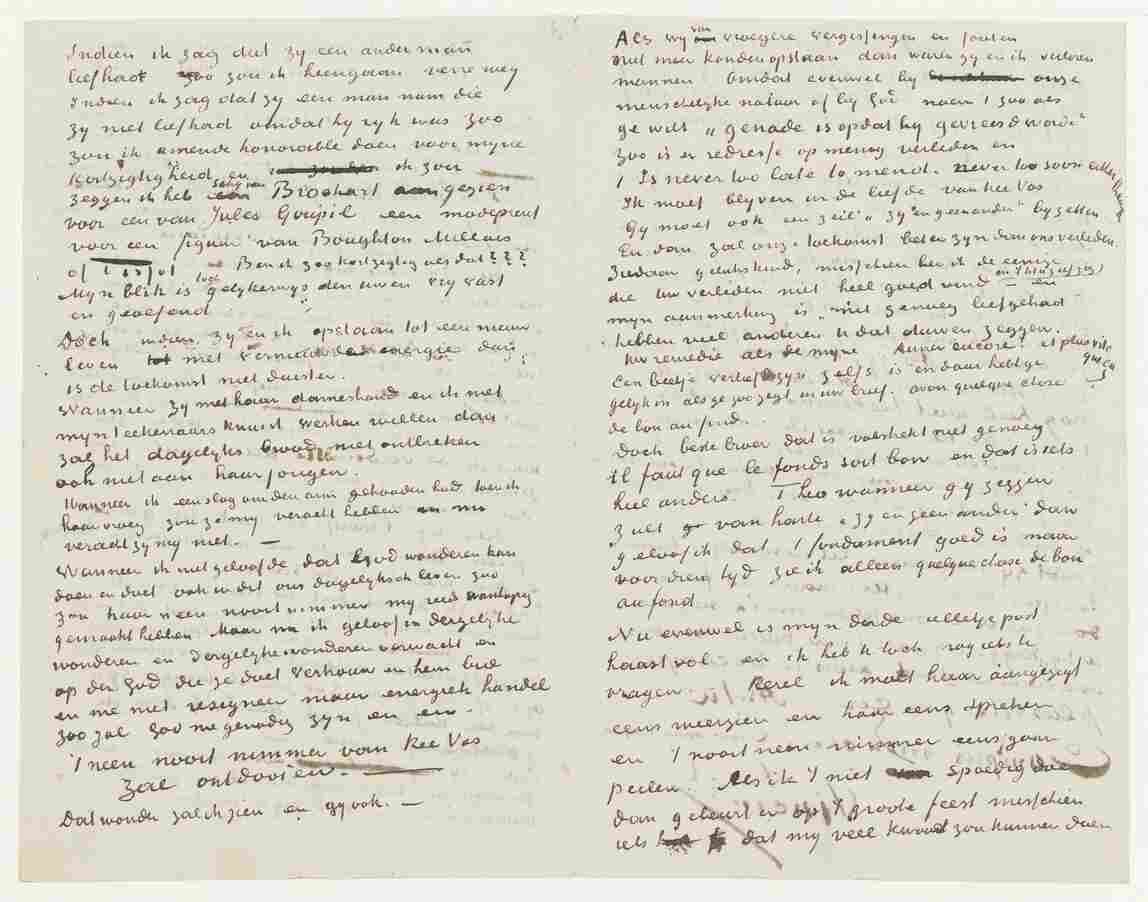 Indien ik zag dat zy een ander man
liefhad zoo zou ik heengaan verre weg
Indien ik zag dat zy een man nam die
zy niet liefhad omdat hy ryk was zoo
zou ik amende honorable doen voor myne
kortzigtigheid en ik zou
zeggen ik heb een schy van Brochart aangezien
voor een van Jules Goupil een modeprent
voor een figuur van Boughton Millais
of Tissot Ben ik zoo kortzigtig als dat???
Myn blik is toch gelykerwys den uwen vry vast
en geoefend
Doch indien zy en ik opstaan tot een nieuw
leven met vernieuwde energie dan
is de toekomst niet duister.
Wanneer zy met haar dameshand en ik met
myn teekenaars knuist werken willen dan
zal het dagelyks brood niet ontbreken
ook niet aan haar jongen.
Wanneer ik een slag om den arm gehouden had toen ik
haar vroeg zou ze my veracht hebben nu
veracht zy my niet. —
Wanneer ik niet geloofde dat God wonderen kan
doen en doet ook in dit ons dagelyksch leven zoo
zou haar neen nooit nimmer my reed wanhopig
gemaakt hebben Maar nu ik geloof in dergelyke
wonderen en dergelyke wonderen verwacht en
op den God die ze doet vertrouw en hem bid
en me niet resigneer maar energiek handel
zoo zal God me genadig zyn en en.
't neen nooit nimmer van Kee Vos
zal ontdooien. —
Dat wonder zal ik zien en gy ook. —
Als wy van vroegere vergissingen en fouten
niet meer konden opstaan dan waren zy en ik verloren
mannen Omdat evenwel by onze
menschelyke natuur of by God noem 't zoo als
ge wilt „genade is opdat hy gevreesd worde"
zoo is er redresse op menig verleden en
't Is never too late to mend. never too soon either
Ik moet blyven in de liefde van Kee Vos
Gy moet ook een zeil „zy en geen ander" byzetten
En dan zal onze toekomst beter zyn dan ons verleden.
Ziedaar gelukskind, misschien ben ik de eenige
die Uw verleden niet heel goed vind en
myn aanmerking is „niet genoeg liefgehad
hebben veel anderen U dat durven zeggen.
Uw remedie als de myne Aimer encore! et plus vite que ça
Een beetje verliefd zyn zelfs is en daar hebt ge
gelyk in als ge zoo zegt in uw brief. avoir quelque chose
de bon au fond.
Doch beste broer dat is volstrekt niet genoeg
il faut que le fonds soit bon en dat is iets
heel anders. Theo wanneer gy zeggen
zult van harte „zy en geen ander" dan
geloof ik dat 't fondament goed is maar
voor dien tyd zie ik alleen quelque chose de bon
au fond
Nu evenwel is myn derde velletje post
haast vol en ik heb U toch nog iets te
vragen. Kerel ik moet haar aangezigt
eens weerzien en haar eens spreken
en 't nooit neen nimmer eens gaan
peilen. Als ik 't niet spoedig doe
dan gebeurt er op 't groote feest misschien
iets dat my veel kwaad zou kunnen doen